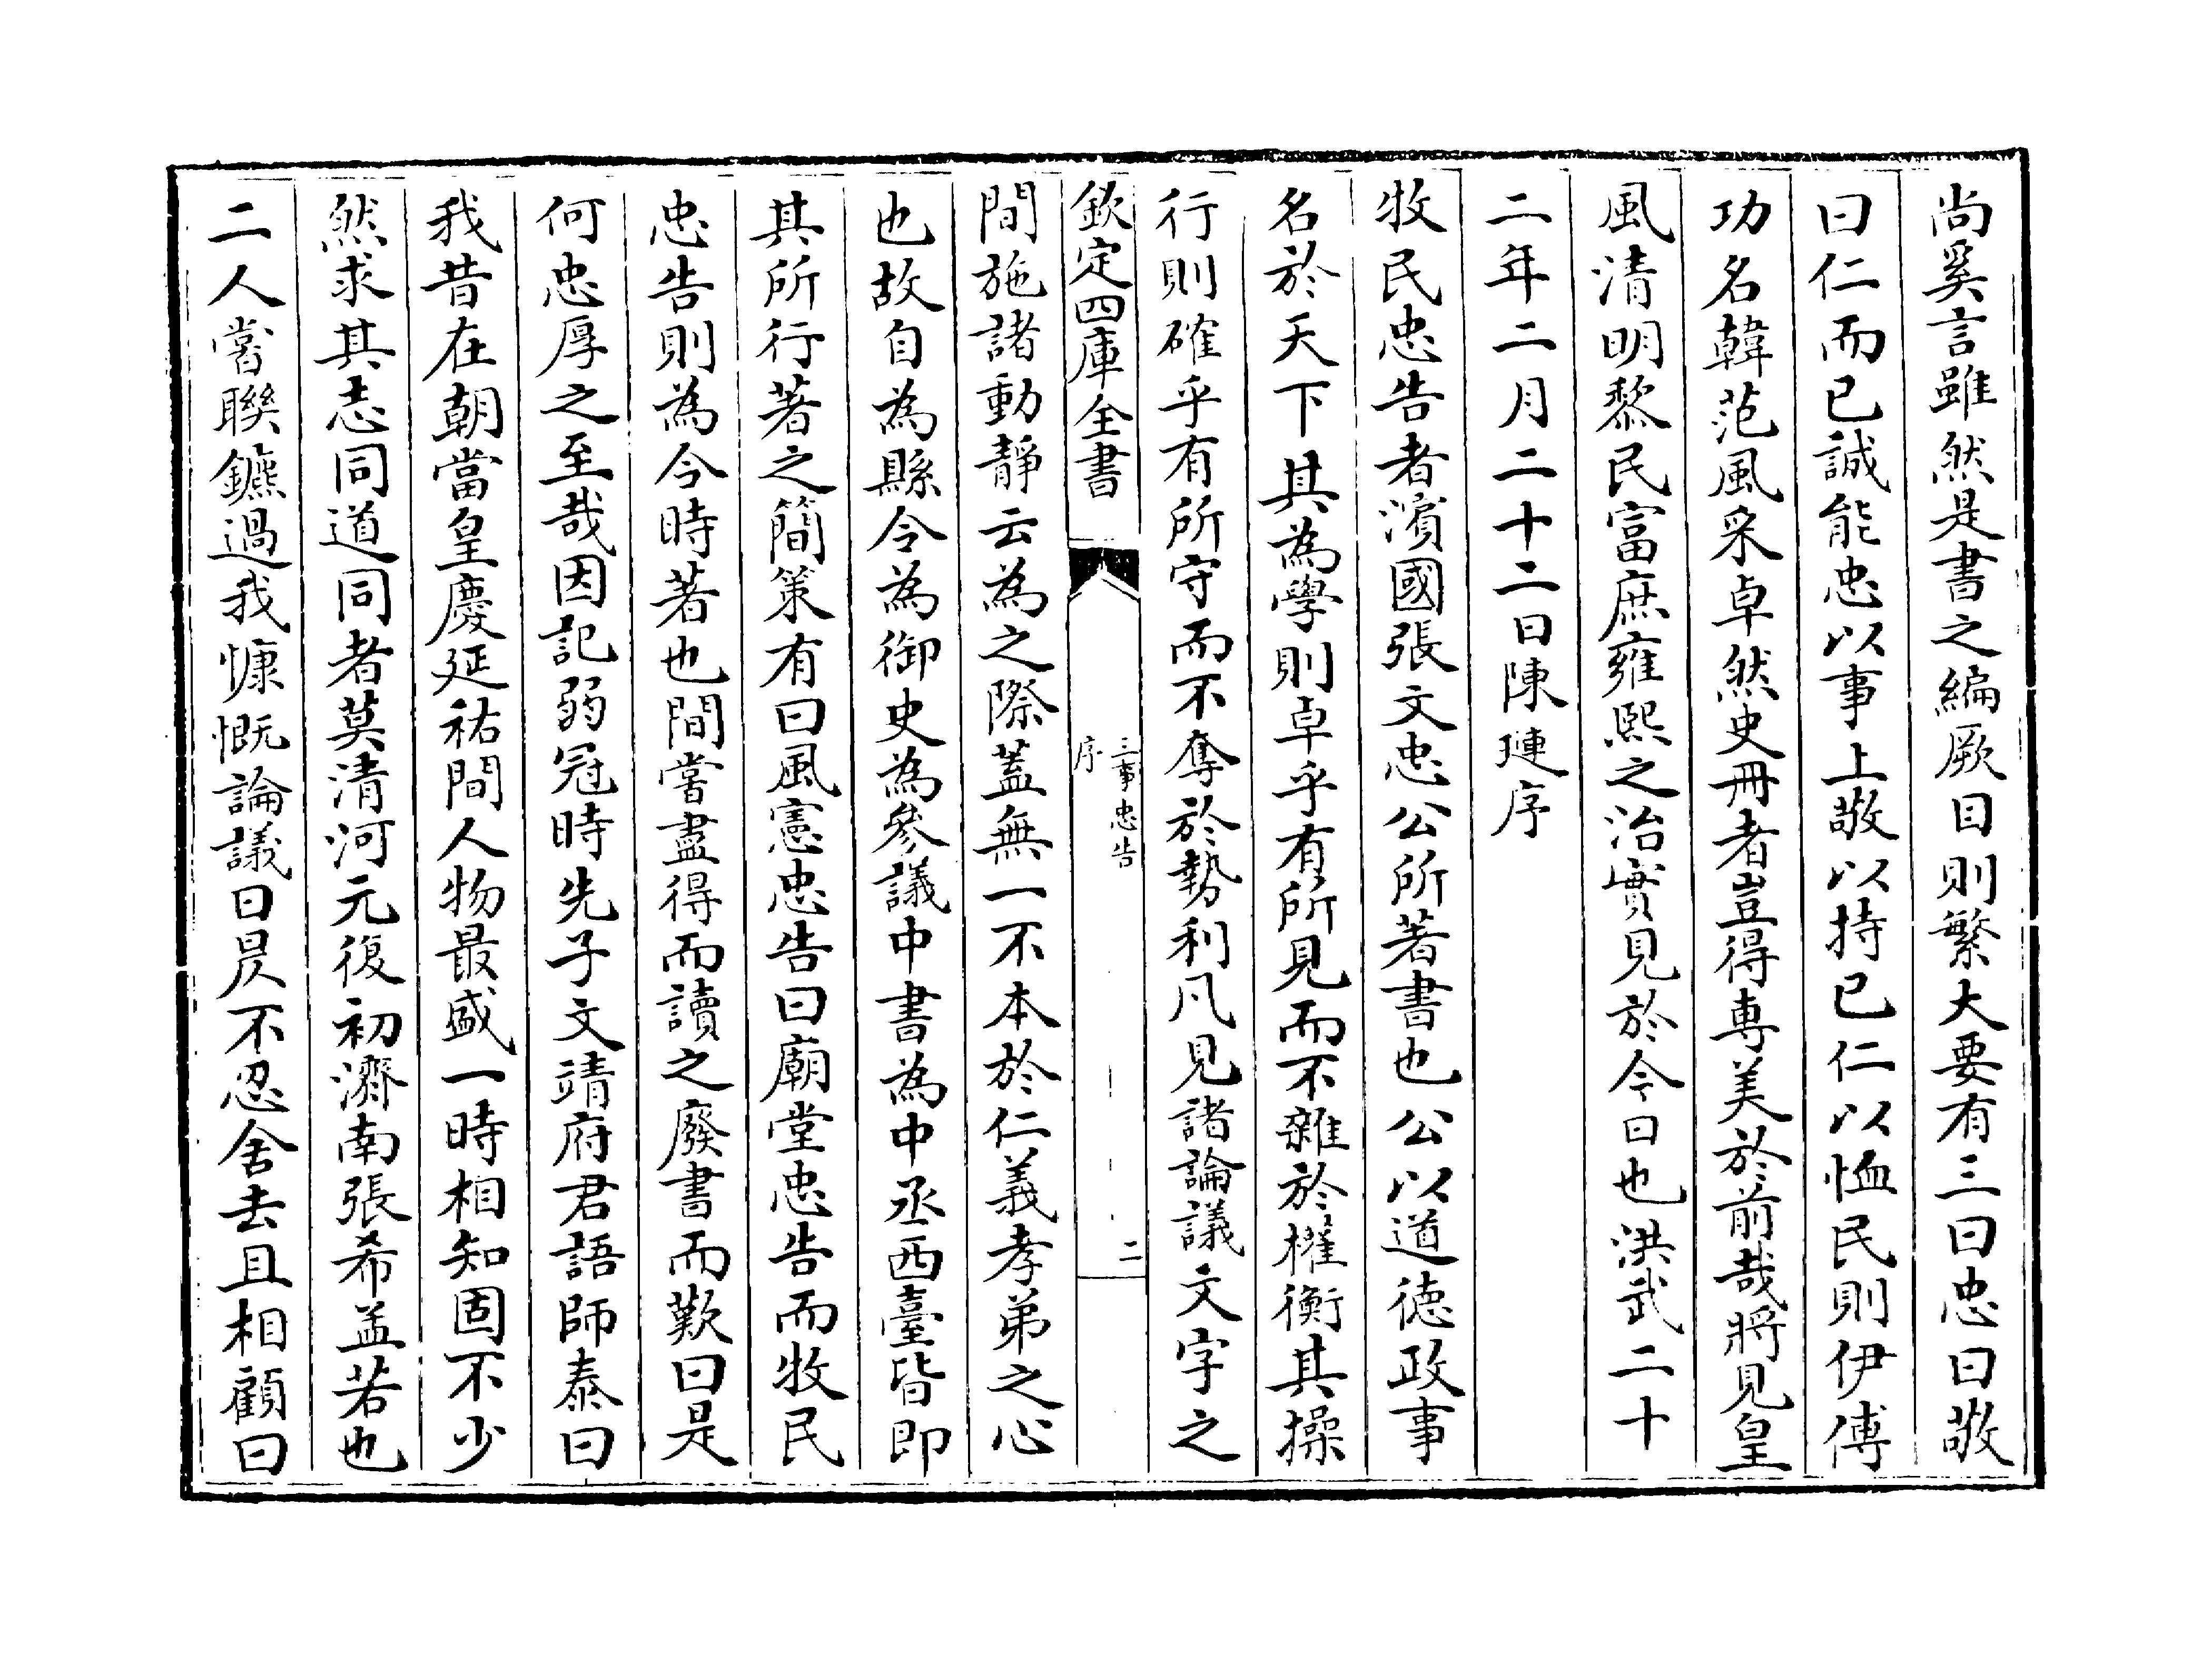 尚奚言雖然是書之編厥目則繁大要有三曰忠曰敬
曰仁而已誠能忠以事上敬以持已仁以恤民則伊傅
功名韓范風采卓然史冊者豈得專美於前哉將見皇
風清明黎民富庶雍熙之治實見於今日也洪武二十
二年二月二十二日陳璉序
牧民忠告者濱國張文忠公所著書也公以道徳政事
名於天下其為學則卓乎有所見而不雜於權衡其操
行則確乎有所守而不奪於勢利凡見諸論議文字之
欽定四庫全書
三事忠告
序
二
間施諸動靜云為之際蓋無一不本於仁義孝弟之心
也故自為縣令為御史為參議中書為中丞西臺皆即
其所行著之簡策有曰風憲忠告曰廟堂忠告而牧民
忠告則為今時著也間嘗盡得而讀之廢書而歎曰是
何忠厚之至哉因記弱冠時先子文靖府君語師泰曰
我昔在朝當皇慶延祐間人物最盛一時相知固不少
然求其志同道同者莫清河元復初濟南張希孟若也
二人嘗聯鑣過我慷慨論議日昃不忍舍去且相顧曰